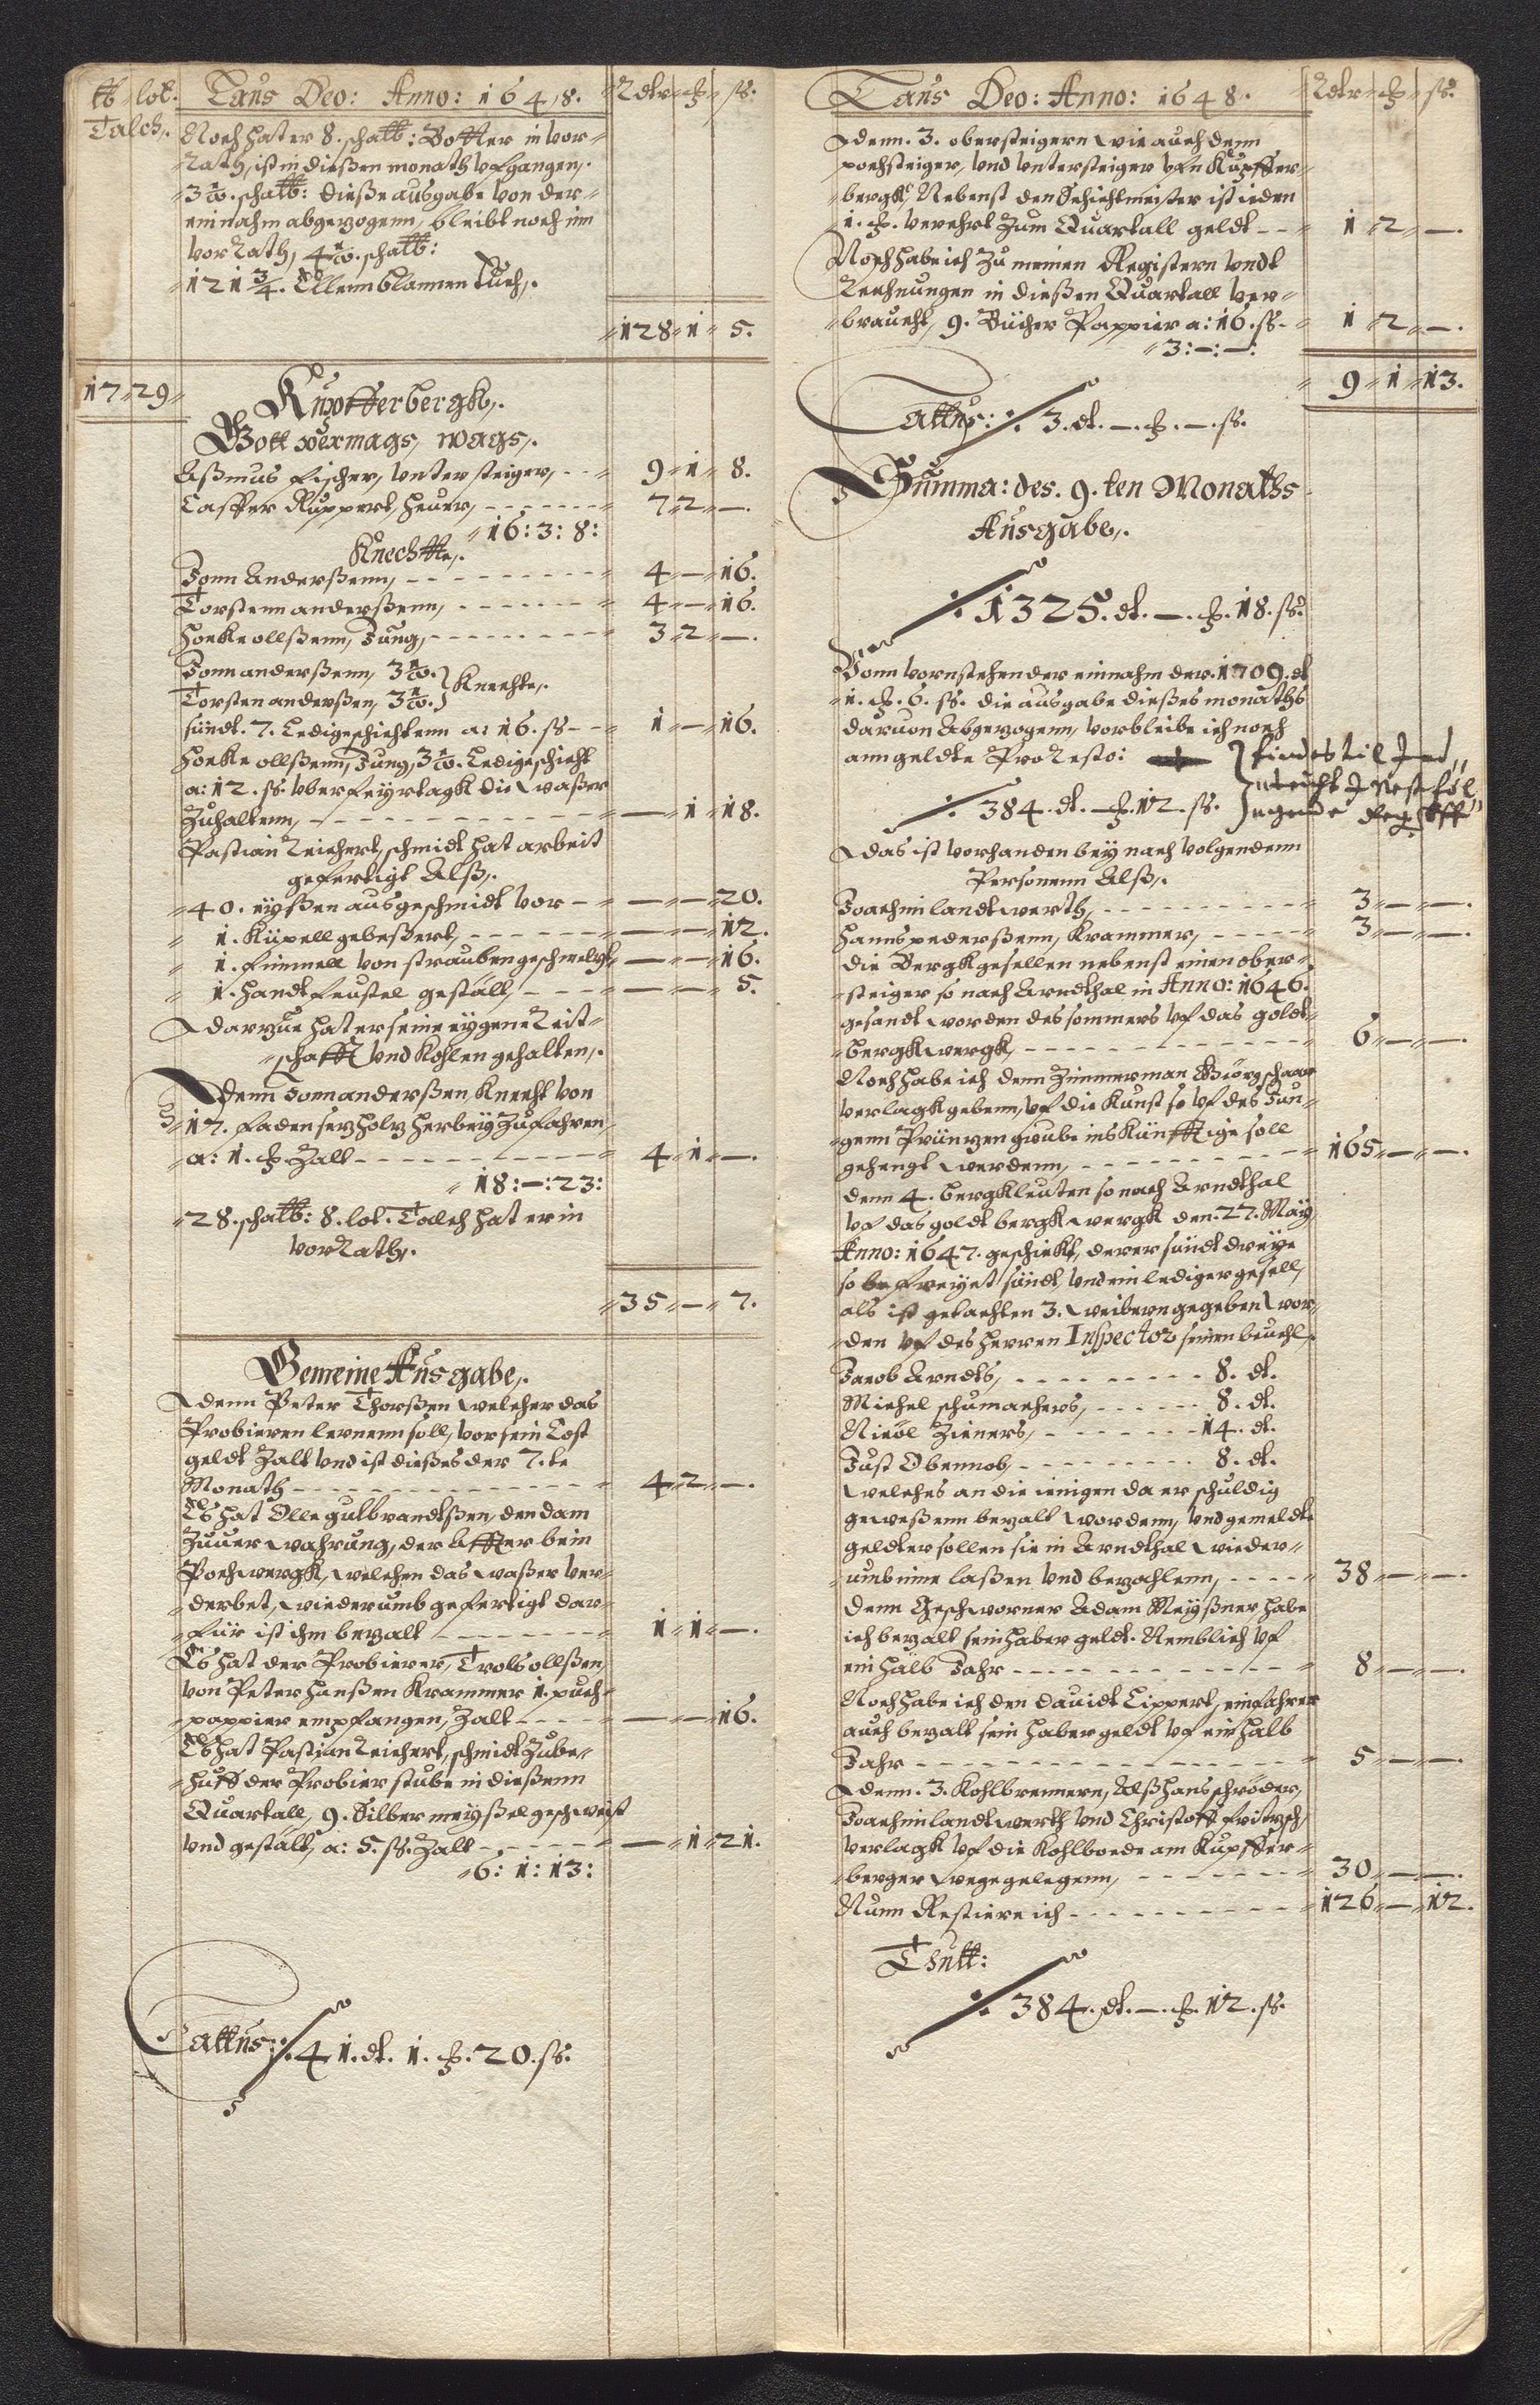 lb lot. Laus Deo: Anno: 1648. Rdtr ß.
Talch.
Noch hat er 8. schalb: Botter in vor-
rath, ist in dießen monath vfgangen,
3 schalb: dieße ausgabe von der-
einnahm abgezogenn, bleibt noch im
vorrath, 4 schalb:
121 3/4. Ellenn blannen tuch.
128 1 5.
17 29
Kupfferbergk.
Gott vermags, wags.
Aßmus Fischer, Untersteiger, 9 1 8.
Casper Ruppert, heuer, 7 2 —.
16: 3: 8:
Knechtte.
Jonn Anderßenn, 4 — 16.
Torstenn anderßenn, 4 — 16.
Hocke ollßenn, Jung, 3 2 —.
Jonn anderßenn, 3
Torsten anderßen, 3 } Knechte.
sündt. 7. Ledigeschichtenn a: 16. ß 1 — 16.
Hocke ollßenn, Jung, 3 Ledigeschicht
a: 12. ß. vber feyrtagk die waßer
zuhaltenn, — 1 18.
Pastian Reichert, schmidt hat arbeit
gefertigt Alß.
40. eyßen ausgeschmidt vor — — 20.
1. Küpell gebeßert, — — 12.
1. fimmell von strauben geschmeltzt — — 16.
1. handtfeustel gestält, — — 5.
Darzue hat er seine eygene Reit-
schafft vnd Kohlen gehalten.
Denn Jonn anderßen Knecht von
17. faden setzholtz herbey zufahren,
a: 1. zalt 4 1 —.
18: —: 23:
28. schalb: 8. lot. Talch hat er in
vorrath.
35 — 7.
Gemeine Ausgabe.
Denn Peter Thorßen welcher das
Probieren lernenn soll, vor sein Cost
geldt zalt vnd ist dießes der 7. te
Monath 4 2 —.
Es hat Olle gulbrandtßen, den dam
Zuuerwahrung, der Affter bein
Pochwergk, welchen das waßer ver-
derbet, wiederumb gefertigt dar-
für ist ihm bezalt 1 1 —.
Es hat der Probierer, Trols ollßen,
von Peter Hanßen Krammer 1. puch
pappier empfangen, zalt — — 16.
Es hat Pastian Reichert, schmidt zube-
huff der Probier stube in dießenn
Quartall, 9. Silber meyßel geschweist
vnd gestält, a: 5. ß. zalt — 1 21.
6: 1: 13:
Lattus: 41. dt. 1. 20. ß.
Laus Deo: Anno: 1648. Rdtr ß.
Denn. 3. obersteigern wie auch denn
pochsteiger, vnd vntersteiger vfn Kupffer-
bergk, Nebenst den Schichtmeister ist iden
1. verehrt zum Quartall geldt 1 2 —.
Noch habe ich zu meinen Registern vndt
Rechnungen in dießen Quartall ver-
braucht, 9. Bücher Pappier a: 16. ß. 1 2 —.
3: —: —:
9 1 13.
Lattus: 3. dt. —. —. ß.
Summa: des. 9. ten Monaths
Ausgabe.
1325. dt. —. 18. ß.
Vonn vornstehender einnahm der. 1709. dt
1. 6. ß. die ausgabe dießes monaths
daruon Abgezogenn, vorbleibe ich noch
ann geldte Pro Resto: findes til Ind
384. dt. — 12. ß. negst føl
gende
Das ist vorhanden bey nach volgendenn
Personenn Alß.
Joachim landtwerth, 3 — —.
Hanns pederßenn, Krammer, 3 — —.
Die Bergkgesellen nebenst einen ober-
steiger so nach Arndthal in Anno: 1646.
gesandt worden des sommers vf das goldt
bergkwergk, 6 — —.
Noch habe ich denn Zimmerman Georg schaar
verlagk gebenn, vf die Kunst so vf des Jun-
genn Printzen grube ins Künfftige soll
gehengt werdenn, 165 — —.
Denn 4. bergkleuten so nach Arndthal
vf das goldt bergkwergk den. 27. May
Anno: 1647. geschickt, derer sündt dreye
so befreyet sündt, vnd ein lediger gesell,
als ist gedachten 3. weibern gegeben wor-
den vf des Herren Inspector seinen beuehl.
Jacob Arndts, 8. dt.
Michel schumachers, 8. dt.
Nicol Zieners, 14. dt.
Just Obennob, 8. dt.
Welches an die ienigen da er schuldig
geweßenn bezalt wordenn, vnd gemeldte
geldter sollen sie in Arndthal wieder-
umb inne laßen vnd bezahlenn, 38 — —.
Denn Geschworner Adam Meyßner habe
ich bezalt sein haber geldt. Nemblich vf
ein halb Jahr 8 — —.
Noch habe ich den Dauidt Lippert, einfahrer
auch bezalt sein haber geldt vf ein halb
Jahr 5 — —.
Denn. 3. Kohlbrennern, Alß Hans schröder,
Joachim landtwerth vnd Christoff fritzsch,
verlagk vf die Kohlboede am Kupffer-
berger wege gelegenn, 30 — —.
Nunn Restiere ich 126 — 12.
Thutt:
384. dt. —. 12. ß.